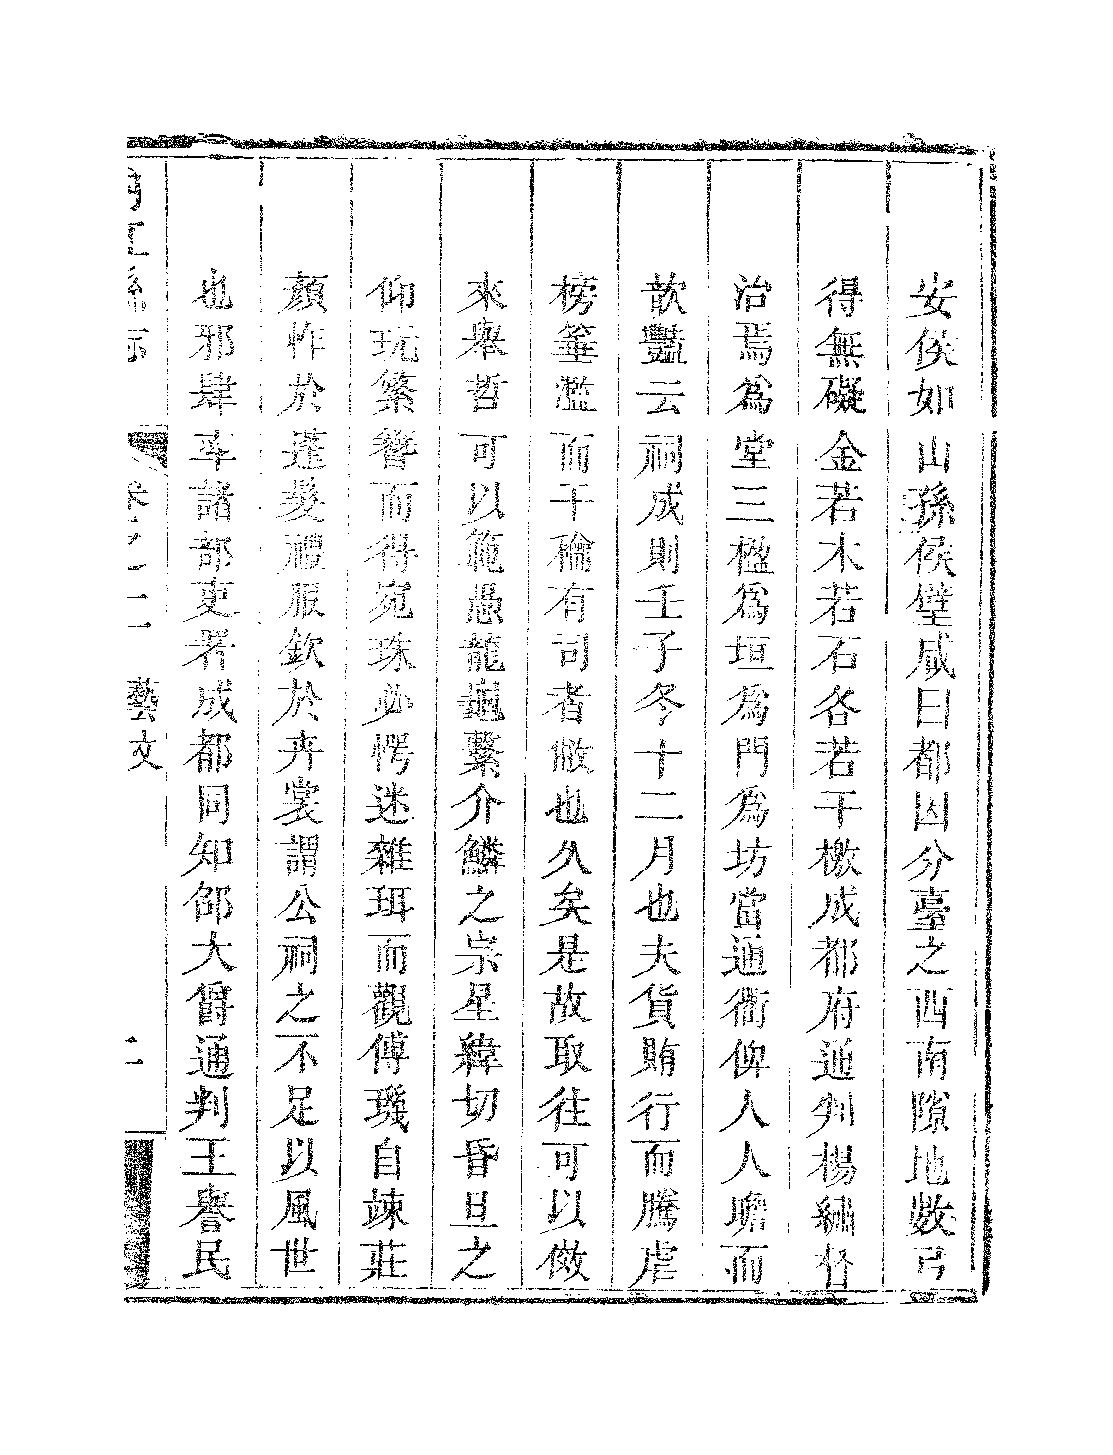 安侯如山孫侯璧咸曰都因分臺之西南隙地數弓
得無礙金若木若石各若干檄成都府通判楊繡督
治焉爲堂三楹爲垣爲門爲坊當通衢俾人人瞻而
歆豔云祠成則壬子冬十二月也夫貨賄行而騰虐
榜箠濫而干綸有司者敝也久矣是故取往可以儆
來舉哲可以範愚龍龜繫介鱗之宗星緯切昏旦之
仰玩縏鞶而得宛珠必愕迷雜珥而觀傅璣自竦莊
顏怍於蓬髮禮服欽於卉裳謂公祠之不足以風世
也邪肆年諸部吏者成都同知邵大爵通判王譽民
內江縣志 卷之十二 藝文 二